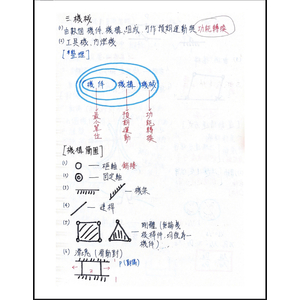 三 機械
(1) 由數個機件.機構.組成 可作預期運動機 功能轉換
(2) 工具機、內燃機
[整理]
機件 機構 機械
最小單位 預期運動 功能轉換
[機構簡圖]
(1) 迴轉 銷接
(2) 固定軸
(3) 機架
(4) 連桿
(5) 剛體(
機件)
(6) 滑塊(滑動對)
P(對偶)